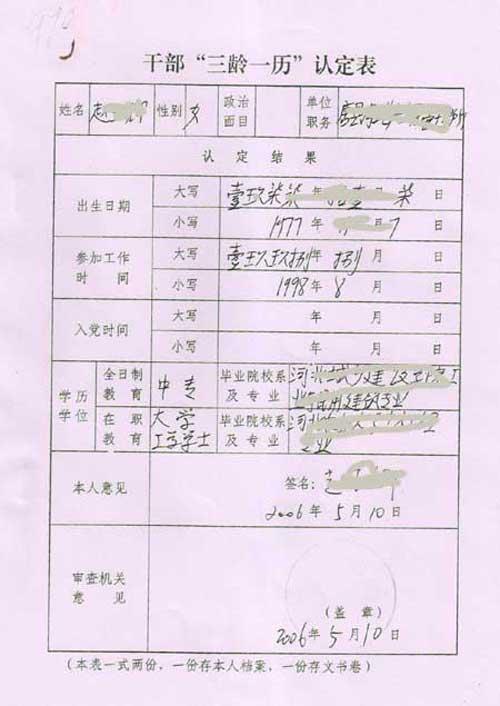 干部“三龄一历”认定表
姓名 赵 性别 女 政治面目 单位职务
认定结果
出生日期 大写 壹玖柒柒 年 柒 日
小写 1977 年 7 日
参加工作时间 大写 壹玖玖捌 年 捌 月 日
小写 1998 年 8 月 日
入党时间 大写 年 月 日
小写 年 月 日
学历学位 全日制教育 中专 毕业院校系及专业 河北 建 专业
在职教育 大学工学学士 毕业院校系及专业 河北 专业
本人意见 签名: 赵
2006 年 5 月 10 日
审查机关意见
(盖章)
2006 年 5 月 10 日
(本表一式两份、一份存本人档案,一份存文书卷)